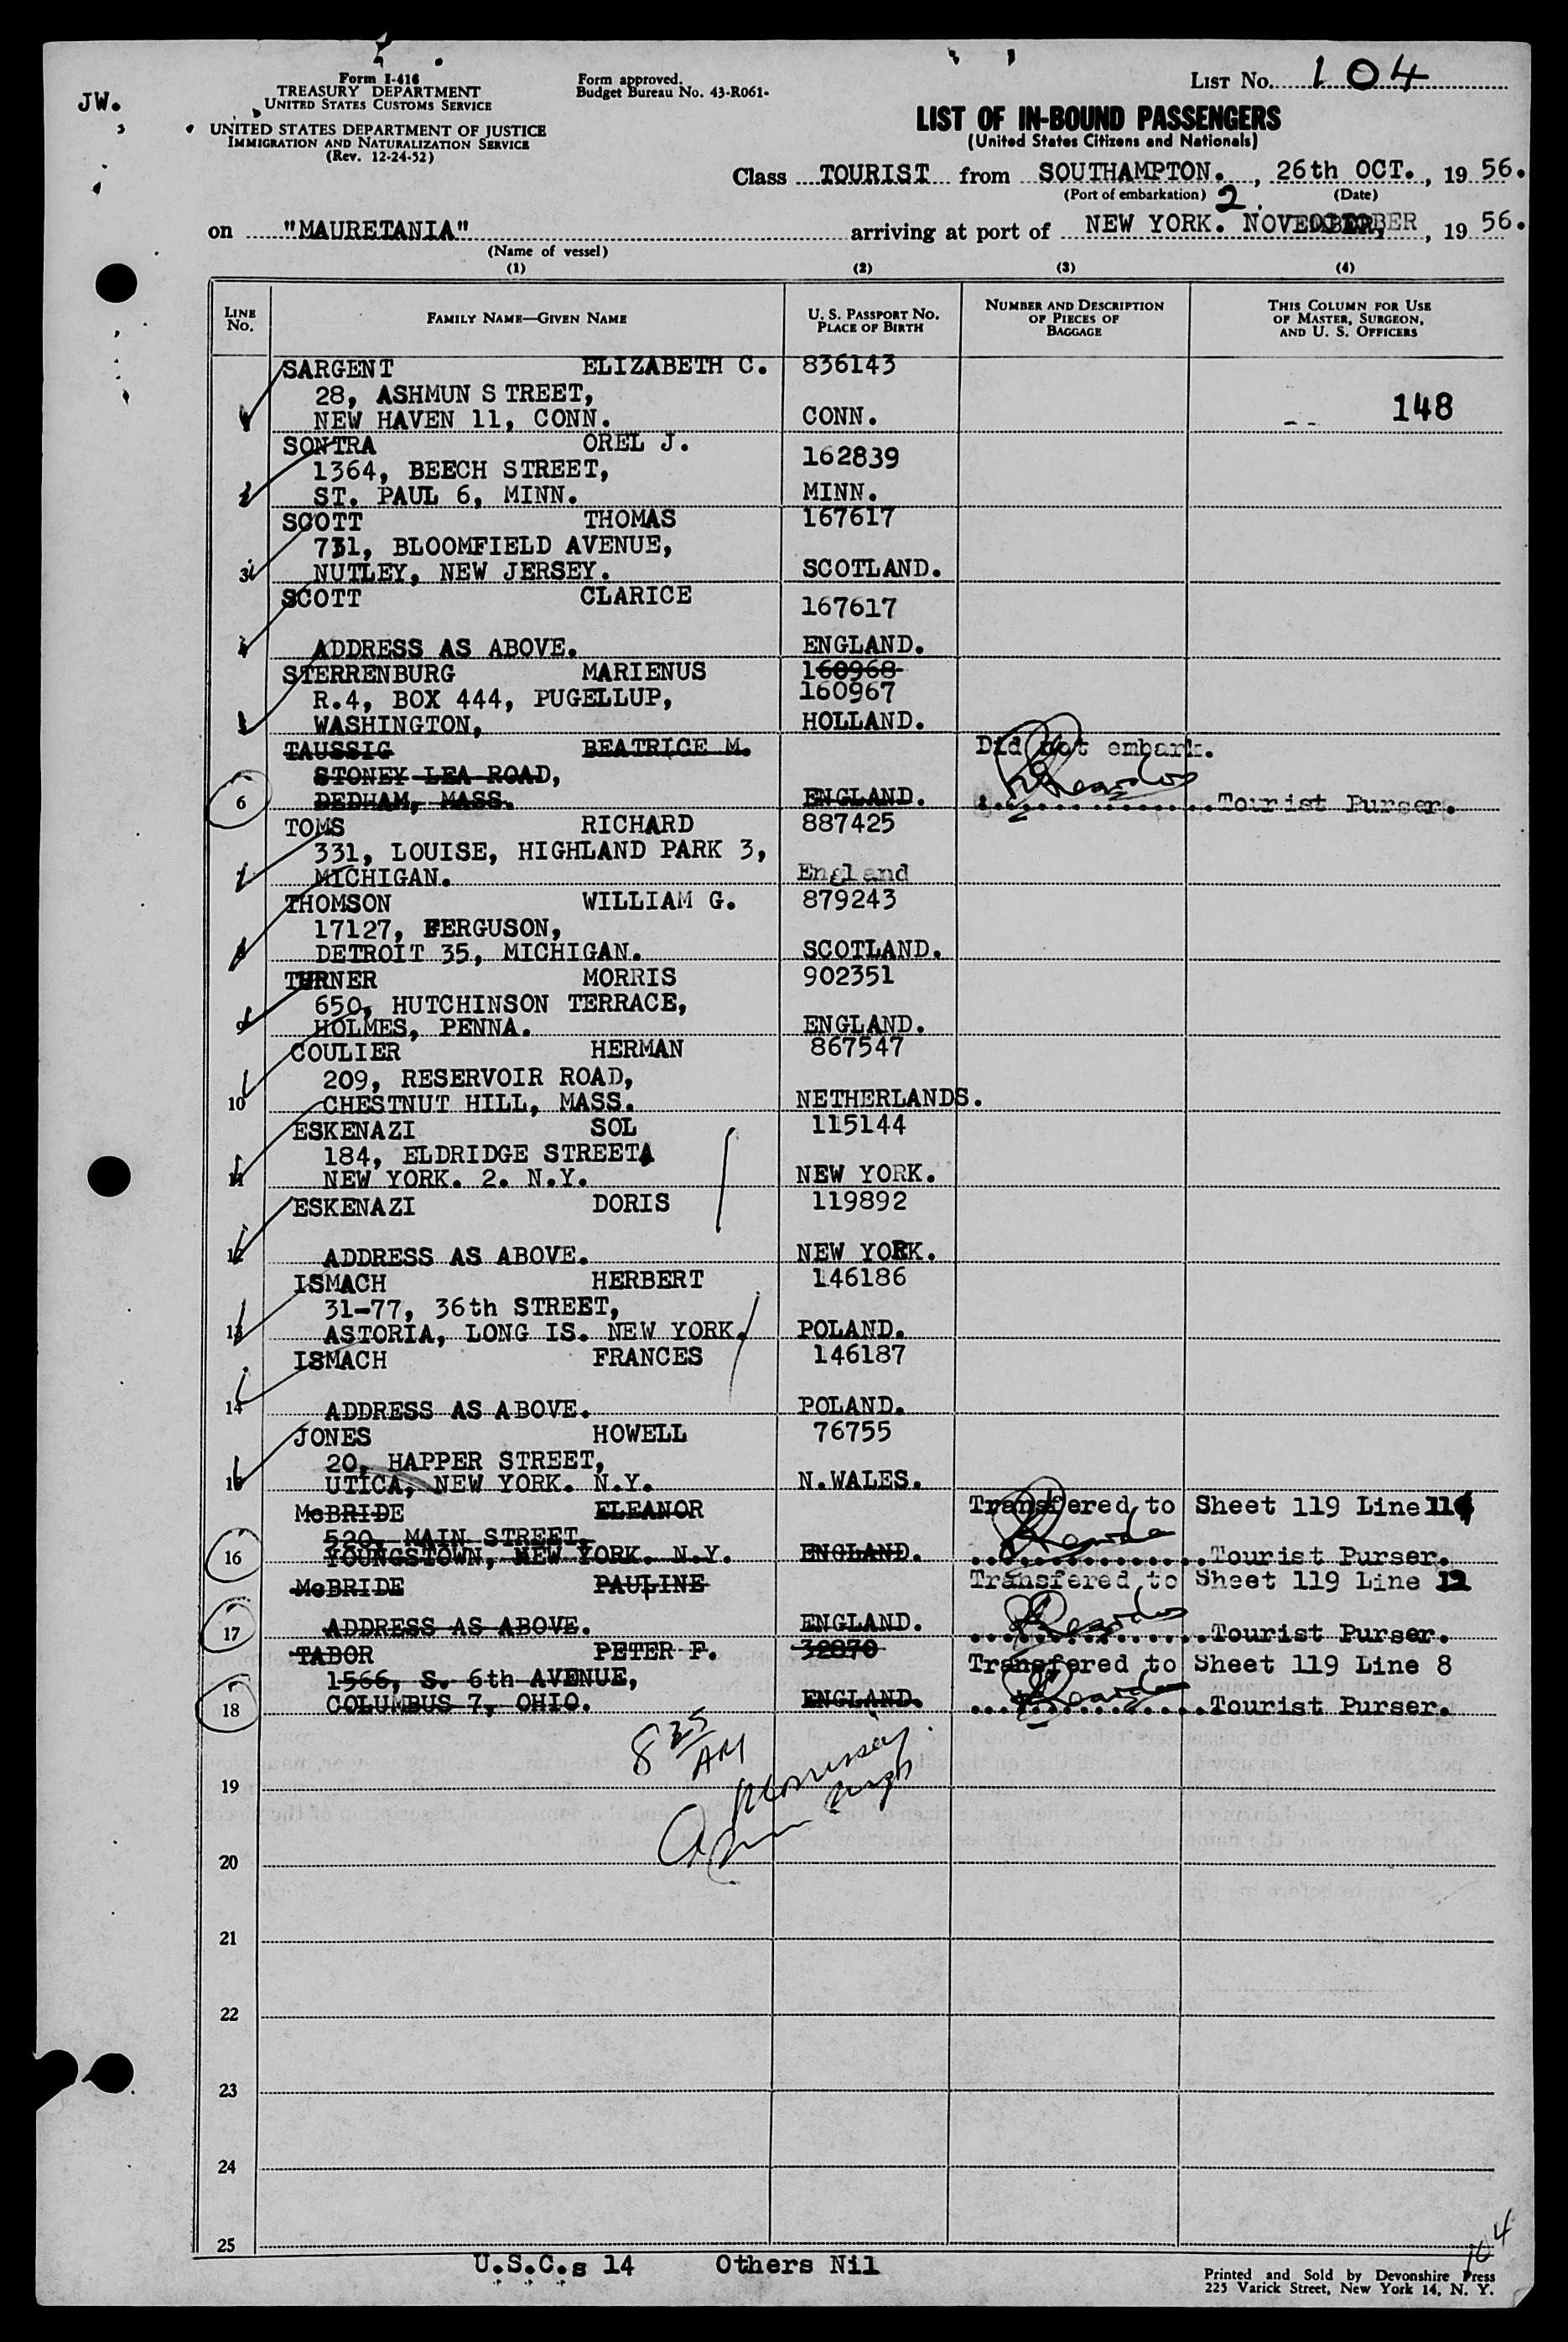 JW.
Form I-416
TREASURY DEPARTMENT
UNITED STATES CUSTOMS SERVICE
UNITED STATES DEPARTMENT OF JUSTICE
IMMIGRATION AND NATURALIZATION SERVICE
(Rev. 12-24-52)
Form approved.
Budget Bureau No. 43-R061-
LIST No. 104
LIST OF IN-BOUND PASSENGERS
(United States Citizens and Nationals)
Class TOURIST from SOUTHAMPTON. , 26th OCT. , 19 56.
(Port of embarkation) (Date)
2.
on "MAURETANIA" arriving at port of NEW YORK. NOVEMBER, 19 56.
(Name of vessel)
(1) (2) (3) (4)
LINE No. FAMILY NAME—GIVEN NAME U. S. PASSPORT No. PLACE OF BIRTH NUMBER AND DESCRIPTION OF PIECES OF BAGGAGE THIS COLUMN FOR USE OF MASTER, SURGEON, AND U. S. OFFICERS
SARGENT ELIZABETH C. 836143
28, ASHMUN S TREET,
NEW HAVEN 11, CONN. CONN. 148
SONTRA OREL J. 162839
1364, BEECH STREET,
ST. PAUL 6, MINN. MINN.
SCOTT THOMAS 167617
731, BLOOMFIELD AVENUE,
3 NUTLEY, NEW JERSEY. SCOTLAND.
SCOTT CLARICE 167617
ADDRESS AS ABOVE. ENGLAND.
STERRENBURG MARIENUS 160968
R.4, BOX 444, PUGELLUP, 160967
WASHINGTON, HOLLAND.
TAUSSIG BEATRICE M. Did not embark.
STONEY LEA ROAD,
6 DEDHAM, MASS. ENGLAND. Tourist Purser.
TOMS RICHARD 887425
331, LOUISE, HIGHLAND PARK 3,
MICHIGAN. England
THOMSON WILLIAM G. 879243
17127, FERGUSON,
DETROIT 35, MICHIGAN. SCOTLAND.
TURNER MORRIS 902351
650, HUTCHINSON TERRACE,
9 HOLMES, PENNA. ENGLAND.
COULIER HERMAN 867547
209, RESERVOIR ROAD,
10 CHESTNUT HILL, MASS. NETHERLANDS.
ESKENAZI SOL 115144
184, ELDRIDGE STREET
11 NEW YORK. 2. N.Y. NEW YORK.
ESKENAZI DORIS 119892
12 ADDRESS AS ABOVE. NEW YORK.
ISMACH HERBERT 146186
31-77, 36th STREET,
13 ASTORIA, LONG IS. NEW YORK. POLAND.
ISMACH FRANCES 146187
14 ADDRESS AS ABOVE. POLAND.
JONES HOWELL 76755
20, HAPPER STREET,
15 UTICA, NEW YORK. N.Y. N.WALES.
McBRIDE ELEANOR Transfered to Sheet 119 Line 11
520, MAIN STREET,
16 YOUNGSTOWN, NEW YORK. N.Y. ENGLAND. Tourist Purser.
McBRIDE PAULINE Transfered to Sheet 119 Line 12
17 ADDRESS AS ABOVE. ENGLAND. Tourist Purser.
TABOR PETER F. 32870 Transfered to Sheet 119 Line 8
1566, S. 6th AVENUE,
18 COLUMBUS 7, OHIO. ENGLAND. Tourist Purser.
8 35 AM
19
20
21
22
23
24
25
U.S.C.s 14 Others Nil
104
Printed and Sold by Devonshire Press
225 Varick Street, New York 14, N. Y.